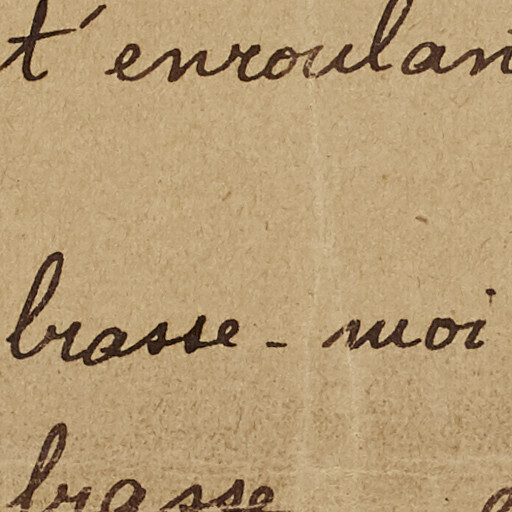 t'enroulan
brasse-moi
brasse